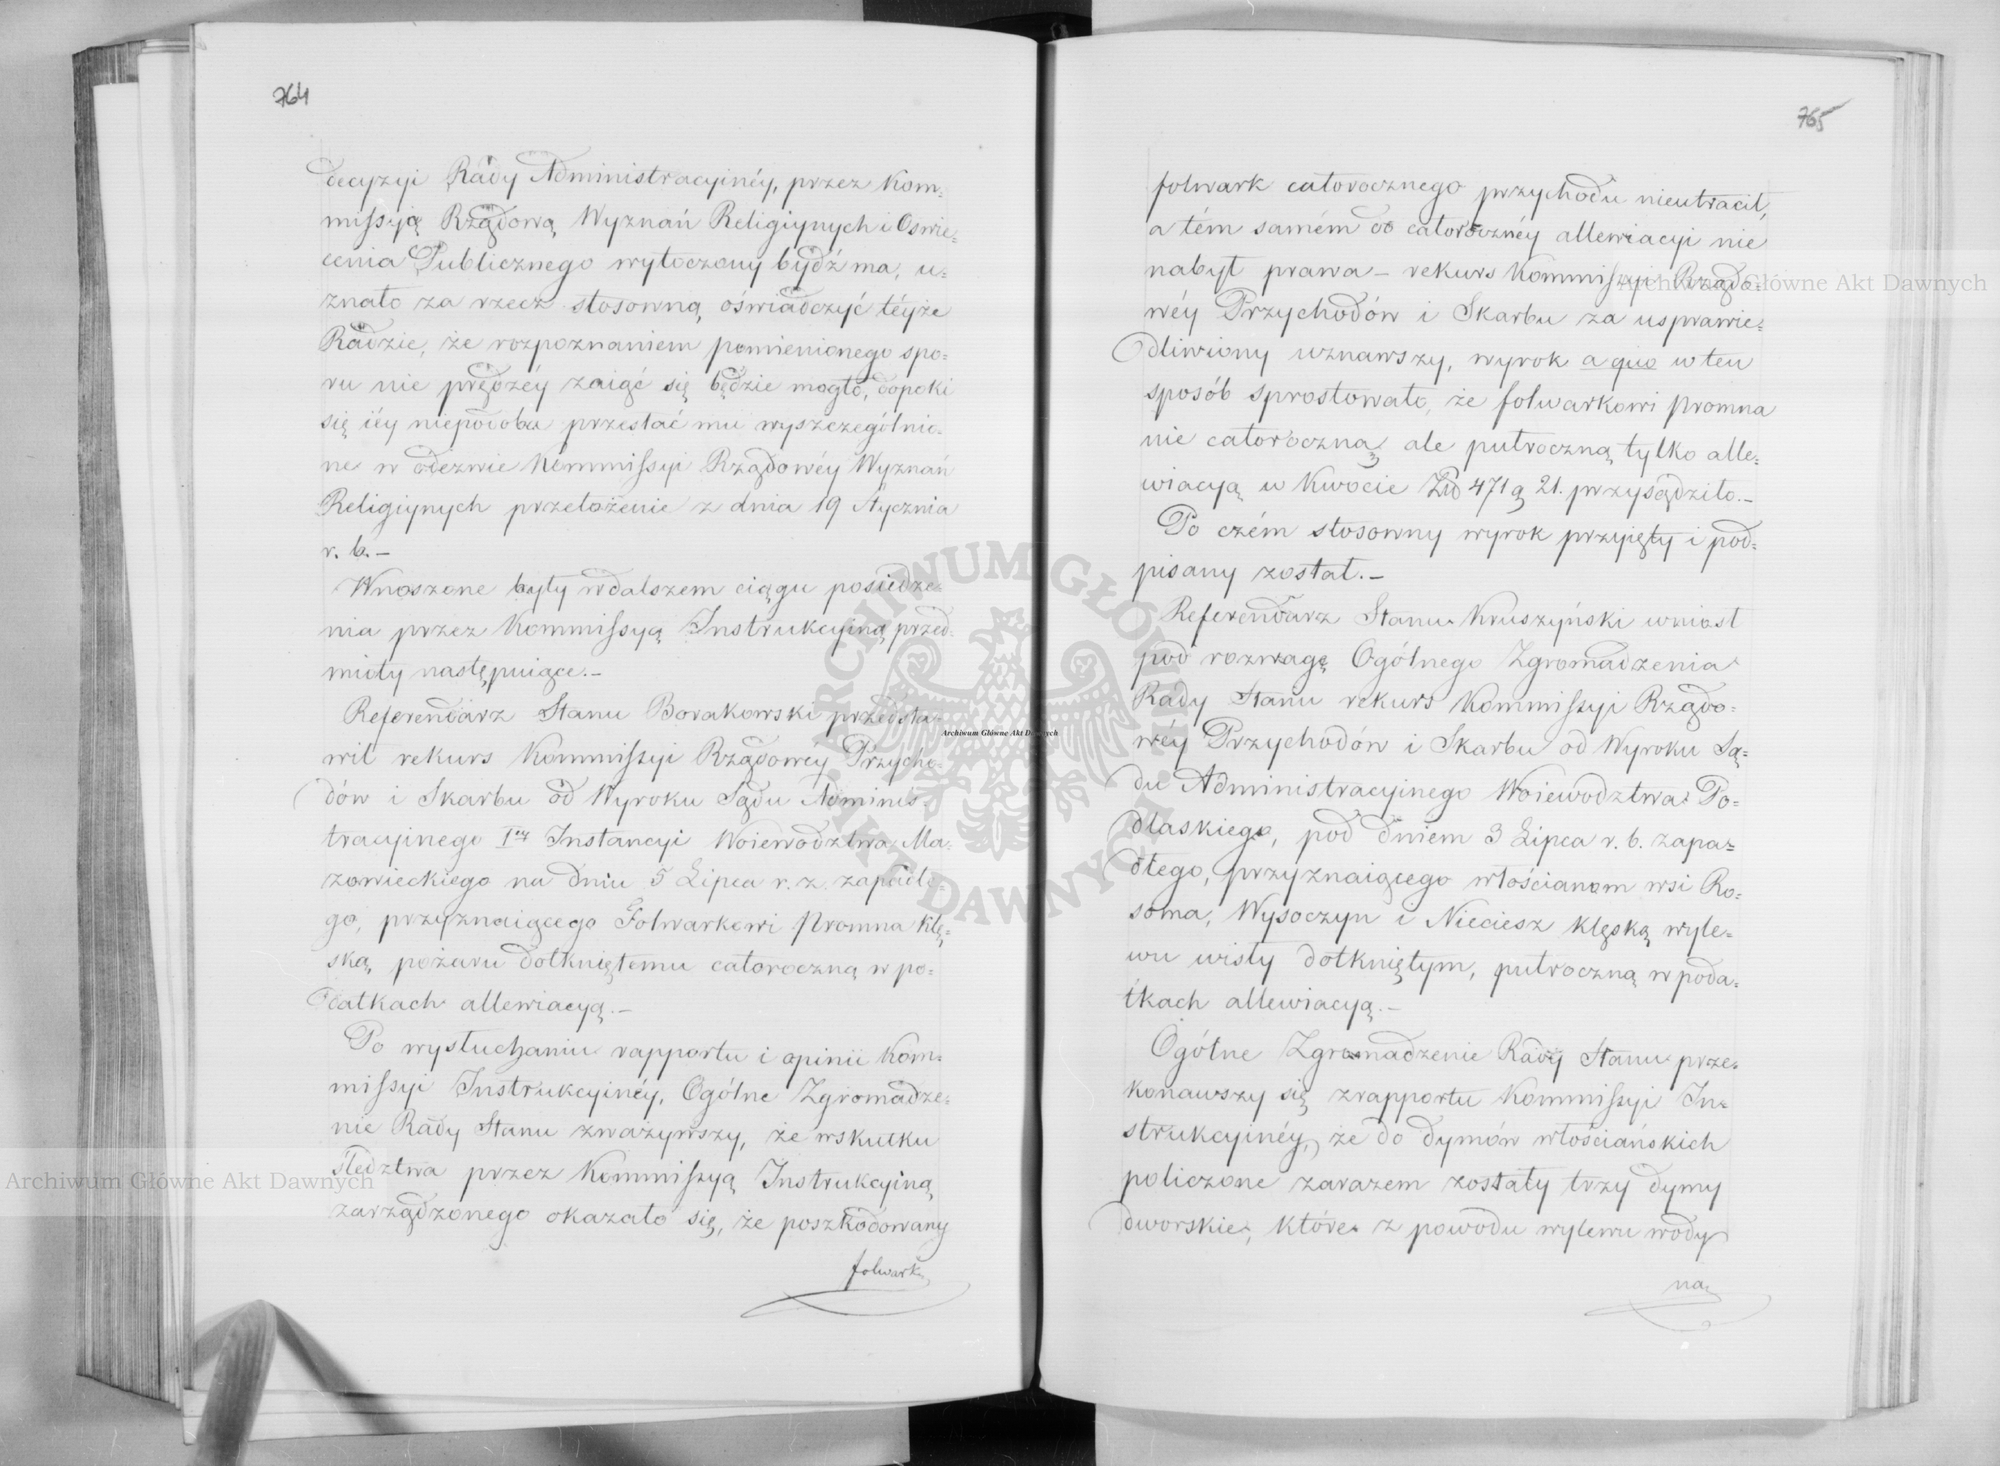 764
decyzyi Rady Administracyinéy, przez Kom-
missyją Rządową Wyznań Religiynych i Oswie-
cenia Publicznego wytoczony bydź ma, u-
znało za rzecz stosowną, oświadczyć téyże
Radzie, że rozpoznaniem pomienionego spo-
ru nie prędzéy zaiąć się będzie mogło, dopoki
się iéy niepodoba przesłać mu wyszczególnio-
ne w odezwie Kommissyi Rządowéy Wyznań
Religiynych przełożenie z dnia 19 Stycznia
r. b.-
Wnoszone były w dalszem ciągu posiedze-
nia przez Kommissyą Instrukcyiną przed-
mioty następuiące.-
Referendarz Stanu Borakowski przedsta-
wił rekurs Kommissyi Rządowéy Przycho-
dów i Skarbu od Wyroku Sądu Adminis-
tracyinego Iéy Instancyi Woiewodztwa Ma-
zowieckiego na dniu 5 Lipca r. z. zapadłe-
go, przyznaiącego Folwarkowi Promna klę-
ską, pożaru dotkniętemu całoroczną w po-
datkach allewiacyą.-
Po wysłuchaniu rapportu i opinii Kom-
missyi Instrukcyinéy, Ogólne Zgromadze-
nie Rady Stanu zważywszy, że wskutku
śledztwa przez Kommissyą Instrukcyiną
zarządzonego okazało się, że poszkodowany
folwark
765
folwark całorocznego przychodu nieutracił,
a tém samém do całorocznéy allewiacyi nie
nabył prawa - rekurs Kommissyi Rządo-
wéy Przychodów i Skarbu za usprawie-
dliwiony uznawszy, wyrok a quo w ten
sposób sprostowało, że folwarkowi Promna
nie całoroczną, ale półroczną tylko alle-
wiacyą w kwocie Złp 471 g 21. przysądziło.-
Po czém stosowny wyrok przyięty i pod-
pisany został.-
Referendarz Stanu Kruszyński wniosł
pod rozwagę Ogólnego Zgromadzenia
Rady Stanu rekurs Kommissyi Rządo-
wéy Przychodów i Skarbu od Wyroku Są-
du Administracyinego Woiewodztwa Po-
dlaskiego, pod dniem 3 Lipca r. b. zapa-
dłego, przyznaiącego włościanom wsi Ro-
soma, Wysoczyn i Nieciesz klęską wyle-
wu wisły dotkniętym, półroczną w poda-
tkach allewiacyą.-
Ogólne Zgromadzenie Rady Stanu prze-
konawszy się z rapportu Kommissyi In-
strukcyinéy, że do dymów włościańskich
policzone zarazem zostały trzy dymy
dworskie, które z powodu wylewu wody
na
Archiwum Główne Akt Dawnych
Archiwum Główne Akt Dawnych
Archiwum Główne Akt Dawnych
ARCHIWUM GŁÓWNE AKT DAWNYCH